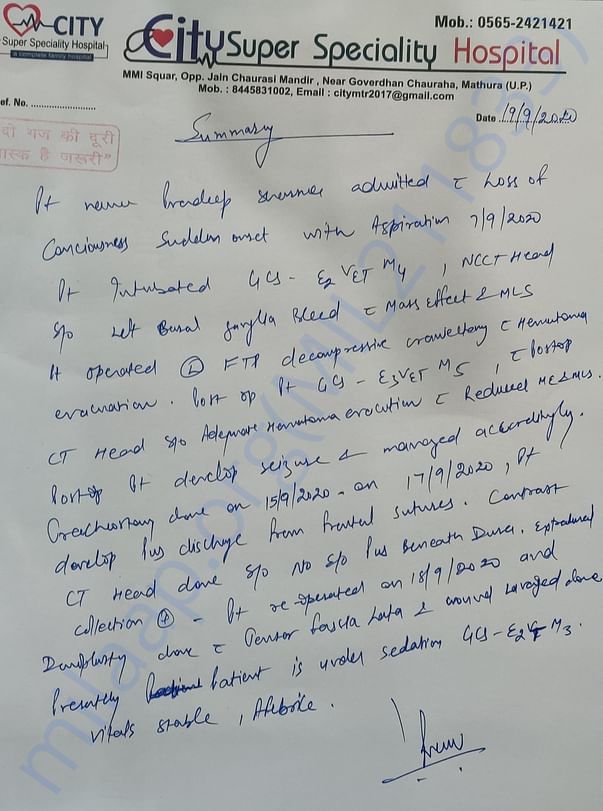 CITY
Super Speciality Hospital
a complete family hospital
City Super Speciality Hospital
Mob.: 0565-2421421
MMI Squar, Opp. Jain Chaurasi Mandir, Near Goverdhan Chauraha, Mathura (U.P.)
Mob. : 8445831002, Email : citymtr2017@gmail.com
ef. No. ..........................
Date 19/9/2020
दो गज की दूरी
मास्क है जरूरी"
Summary
Pt name Pradeep admitted c Loss of
Conciousness Sudden onset with Aspiration 7/9/2020
Pt Intubated GCS - E2 VET M4, NCCT Head
s/o Left Basal ganglia Bleed c Mass effect & MLS
Pt operated (L) FTP decompressive c Hematoma
evacuation. Post op Pt GCS - E3 VET M5, c Postop
CT Head s/o Adequate Hematoma c Reduced ME & MLS.
Postop Pt develop seizure & managed accordingly.
done on 15/9/2020. on 17/9/2020, Pt
develop Pus discharge from frontal sutures. Contrast
CT Head done s/o No s/o Pus Beneath Dura. Extradural
collection (+) - Pt re operated on 18/9/2020 and
done c Tensor fascia Lata & wound done
Presently Patient is under sedation GCS - E2 VT M3.
vitals stable, Afebrile.
milaap.org(MIL2111833)